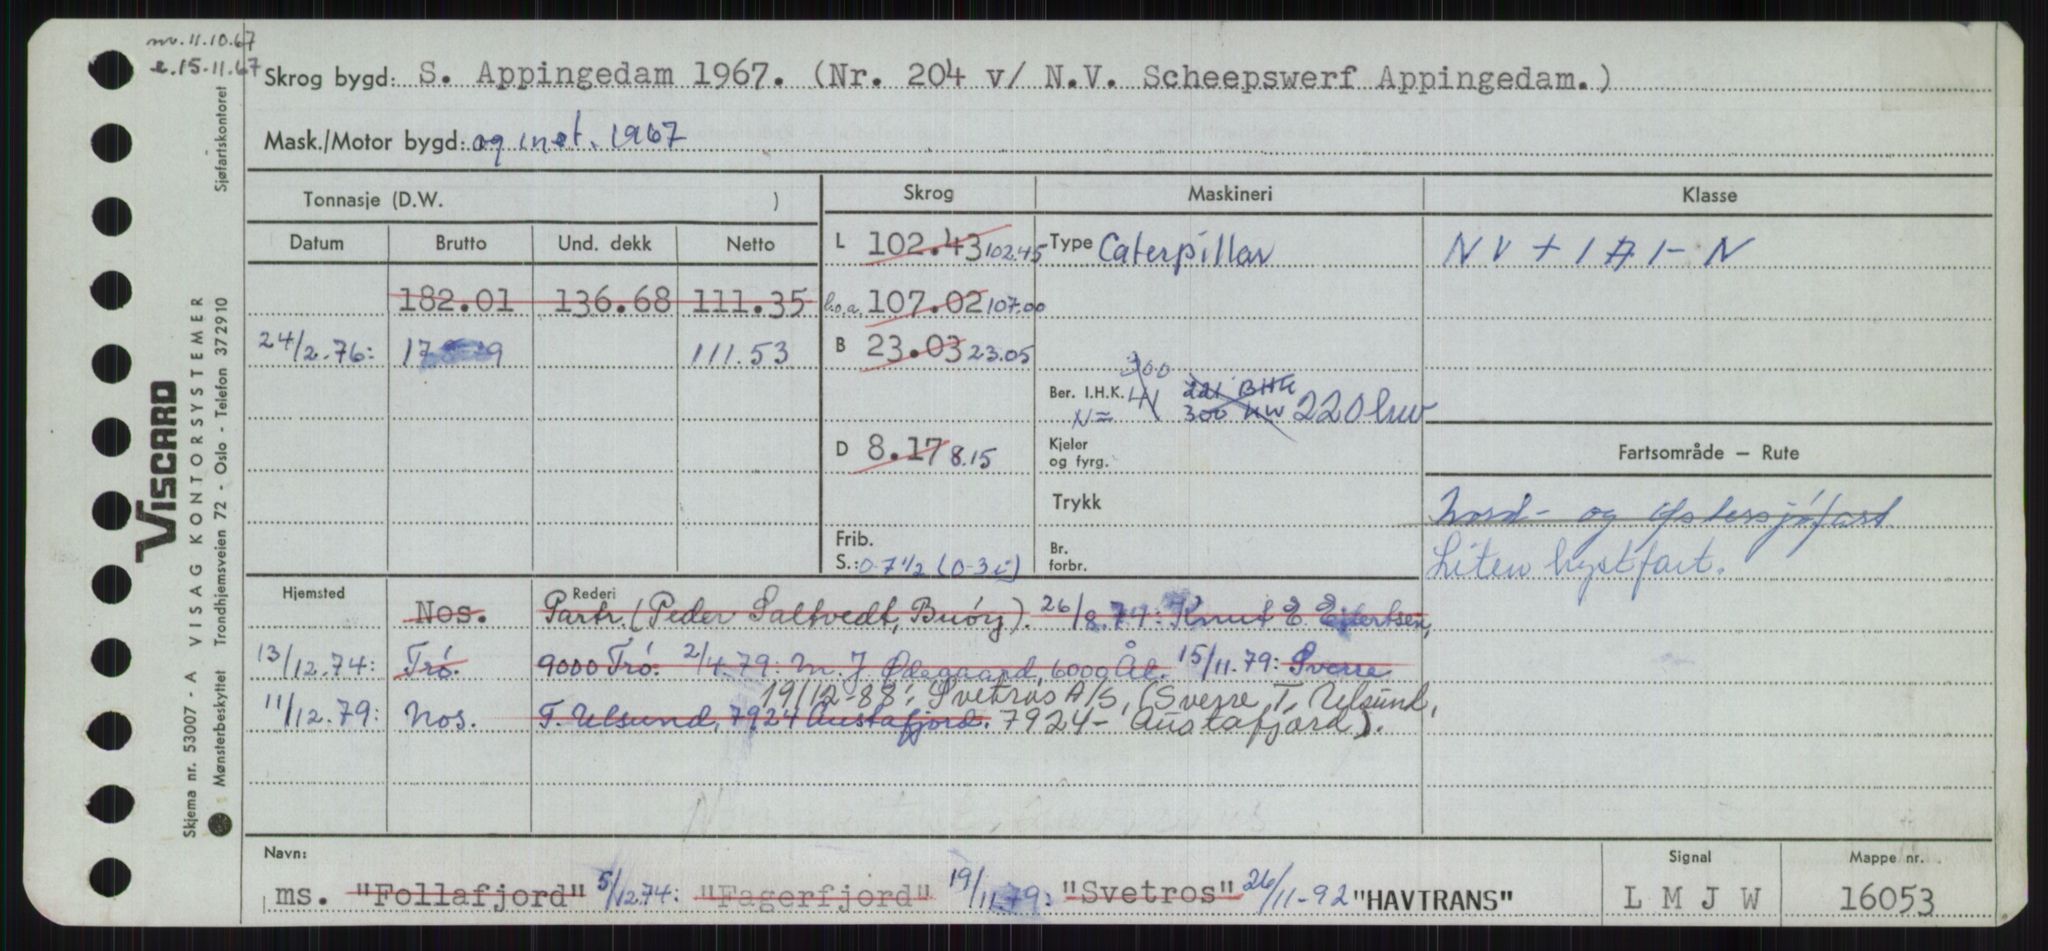 nv. 11.10.67
e. 15-11.67
Skrog bygd: S. Appingedam 1967. (Nr. 204 v/ N.V. Scheepswerf Appingedam.)
Mask./Motor bygd: og inst. 1967
Tonnasje (D.W. )
Skrog
Maskineri
Klasse
Datum
Brutto
Und. dekk
Netto
L 102.43 102.45
Type Caterpillar
NV + 1 A 1 - N
182.01 136.68 111.35
L.o.a. 107.02 107.00
24/2.76: 111.53
B 23.03 23.05
300
Ber. I.H.K. 221 BHK
N= 300 KW 220 kw
D 8.17 8.15
Kjeler
og fyrg.
Fartsområde – Rute
Trykk
Nord- og Østersjøfart
Frib.
S.: 0-7 1/2 (0-3 i)
Br.
forbr.
Liten kystfart.
Hjemsted
Rederi
Nos. Partr. (Peder Saltvedt, Buøy). 26/8.74: Knut E. Ejlertsen,
13/12.74: Trö. 9000 Trö. 2/4.79: M. J. Ødegaard, 6000 Ål. 15/11.79: Sverre
19/12-88: Svetros A/S, (Sverre T. Ulsund,
11/12.79: Nos. T. Ulsund, 7924 Austafjord. 7924 - Austafjord).
Navn:
Signal
Mappe nr.
ms. "Follafjord" 5/12.74: "Fagerfjord" 19/11.79: "Svetros" 26/11-92 "HAVTRANS"
L M J W
16053
Sjøfartskontoret
VISCARD
VISAG KONTORSYSTEMER
Trondhjemsveien 72 - Oslo - Telefon 372910
Skjema nr. 53007 - A
Mønsterbeskyttet